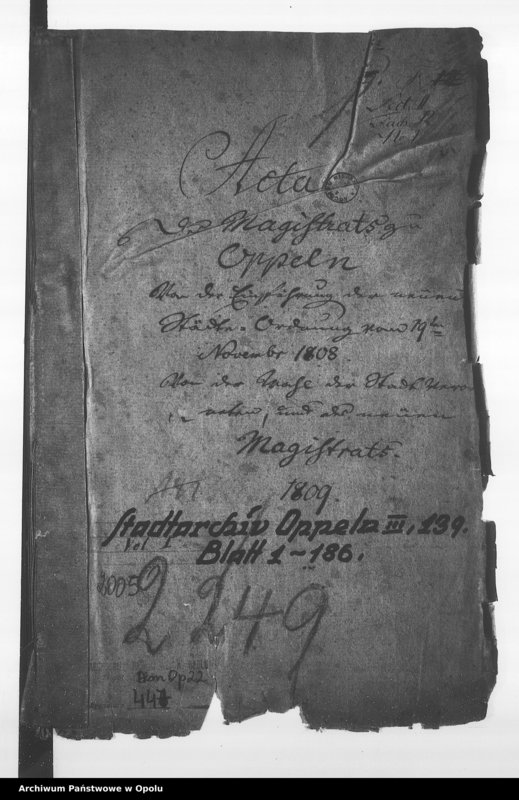 Sect. II
Acta
des Magistrats zu
Oppeln
Von der Einführung der neuen
Städte-Ordnung vom 19ten
Novembr 1808.
Von der Wahl der Stadt Veror
neten, und des neuen
Magistrats.
1809.
Stadtarchiv Oppeln III, 139.
Vol I
Blatt 1-186.
2005
2249
Opp 22
447
Archiwum Państwowe w Opolu